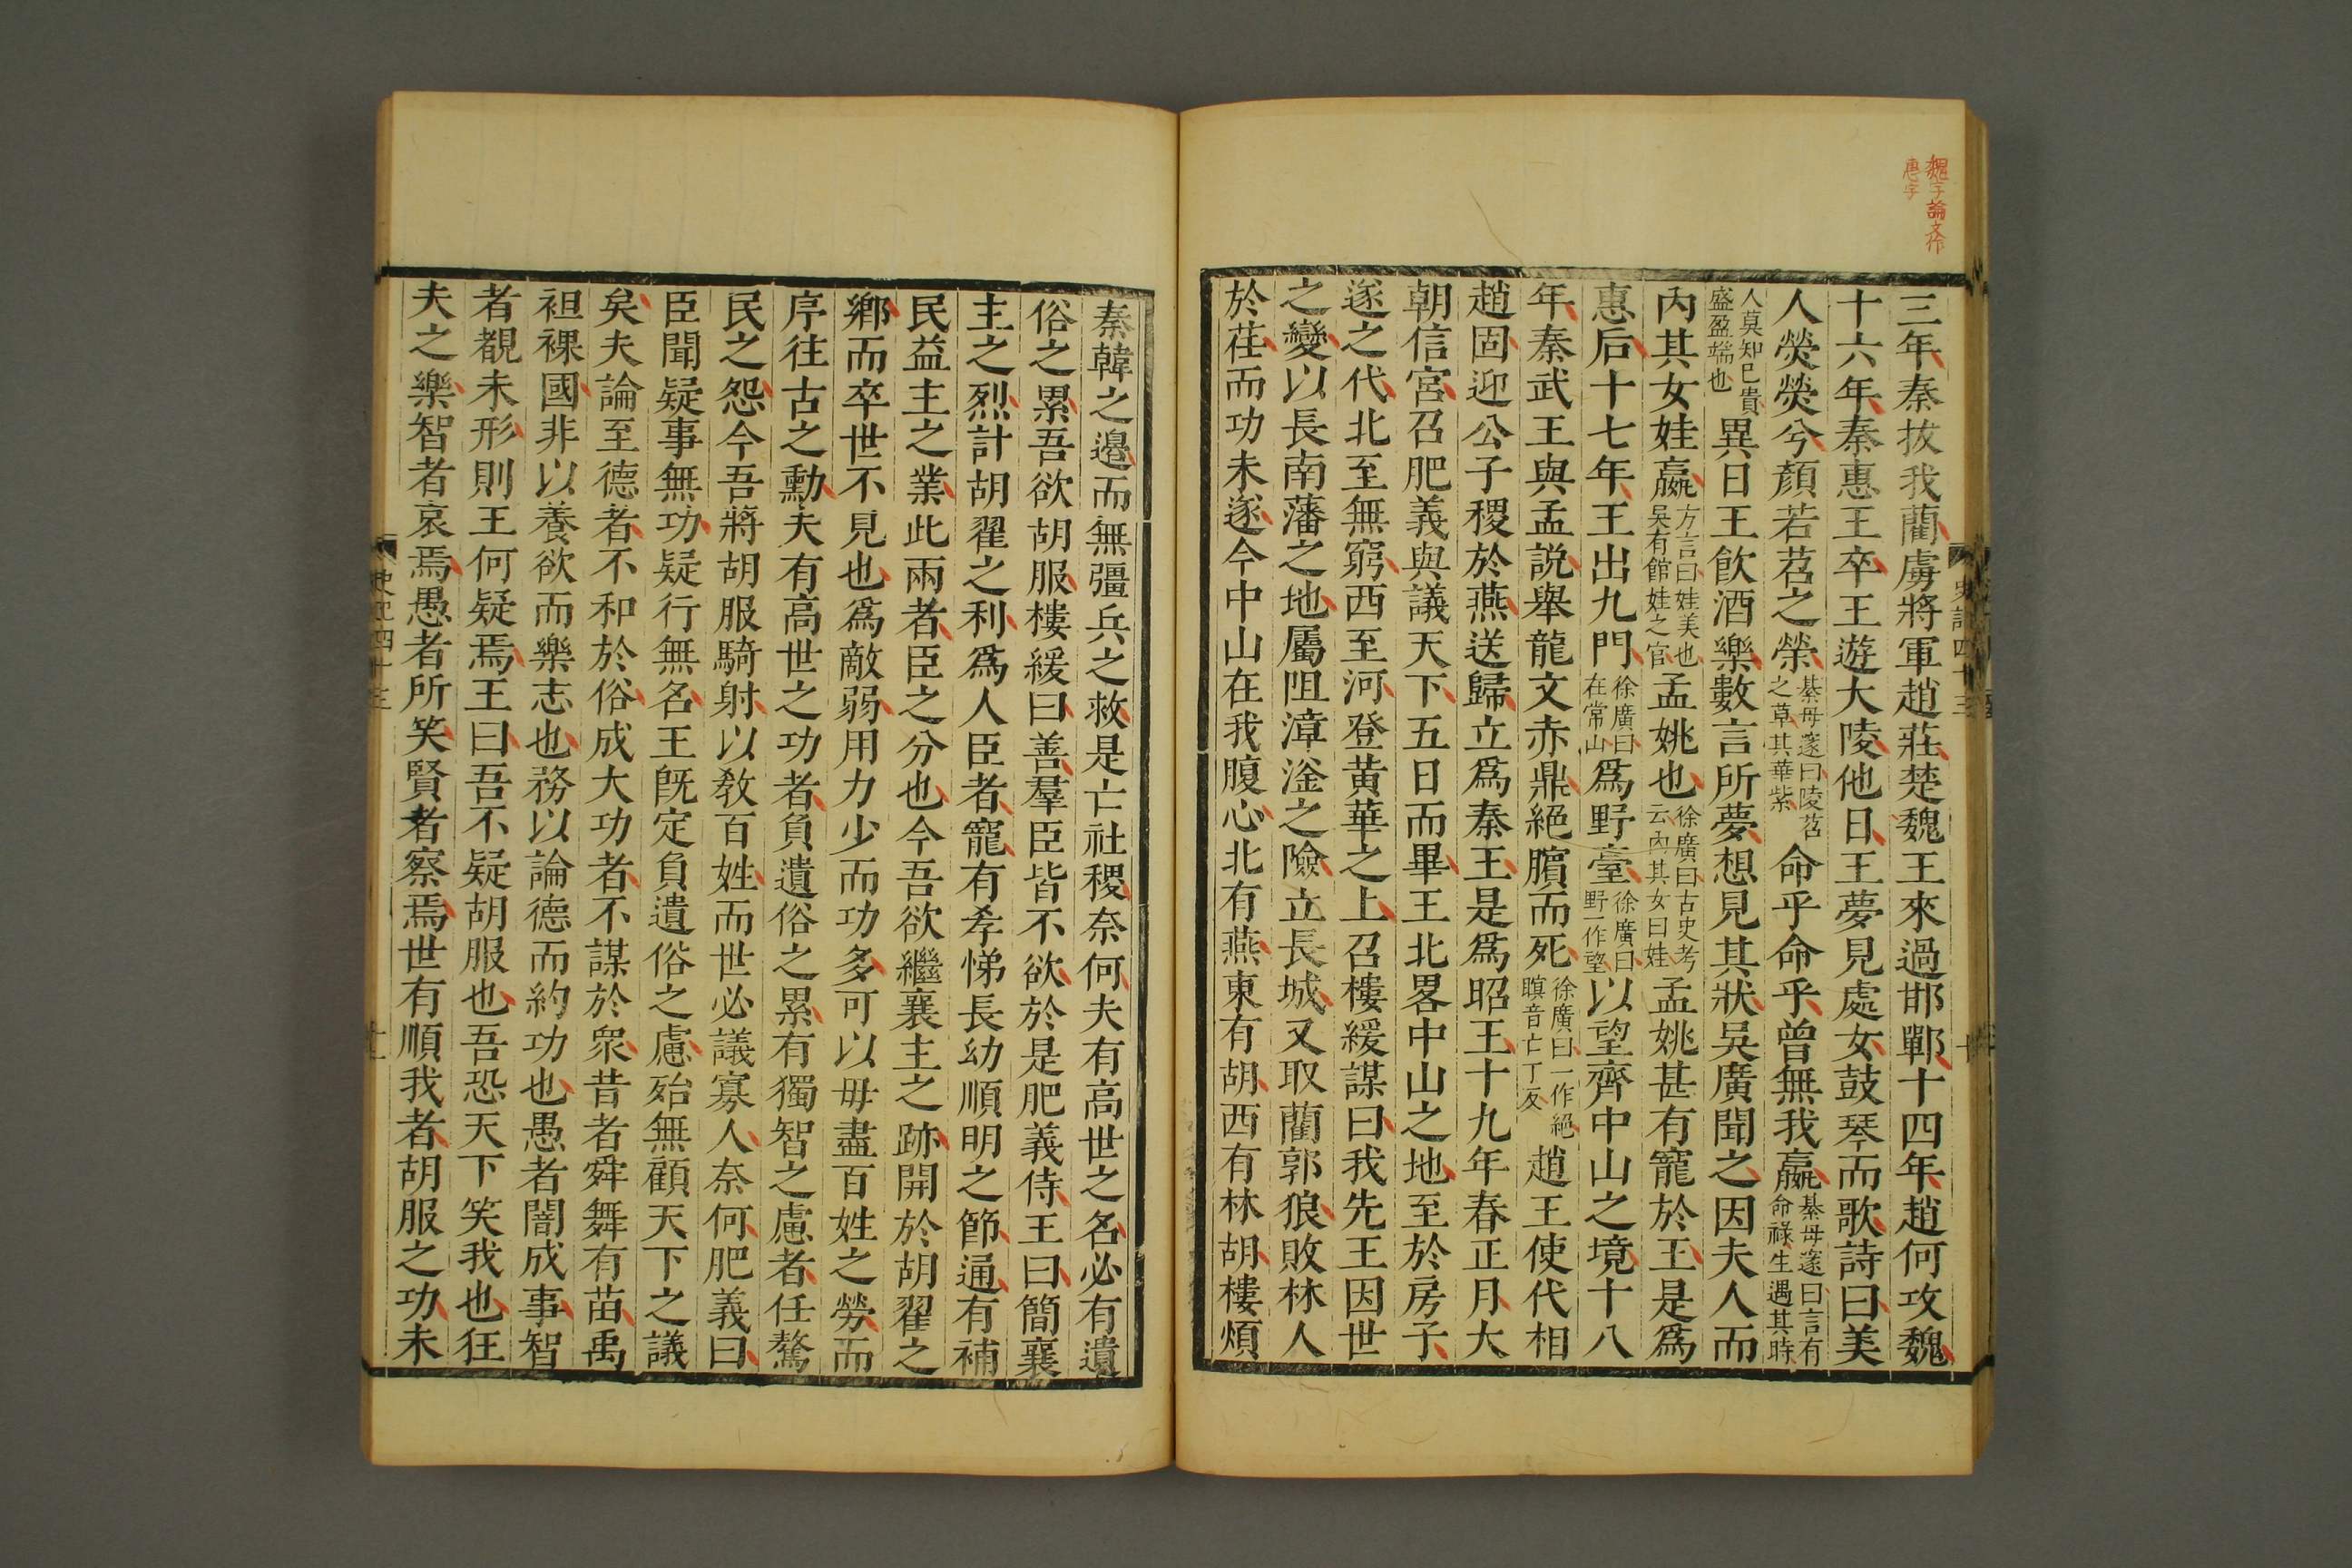 魏字論文作
惠字
三年秦拔我藺虜將軍趙莊楚魏王來過邯鄲十四年趙何攻魏
十六年秦惠王卒王遊大陵他日王夢見處女鼓琴而歌詩曰美
人熒熒兮顏若苕之榮綦母邃曰陵苕之草其華紫命乎命乎曾無我嬴綦母邃曰言有命祿生遇其時
人莫知已貴盛盈端也異日王飲酒樂數言所夢想見其狀吳廣聞之因夫人而
內其女娃嬴方言曰娃美也吳有館娃之宮孟姚也徐廣曰古史考云內其女曰娃孟姚甚有寵於王是爲
惠后十七年王出九門徐廣曰在常山爲野臺徐廣曰野一作望以望齊中山之境十八
年秦武王與孟說舉龍文赤鼎絕臏而死徐廣曰一作絕瞑音亡丁反趙王使代相
趙固迎公子稷於燕送歸立爲秦王是爲昭王十九年春正月大
朝信宮召肥義與議天下五日而畢王北畧中山之地至於房子
遂之代北至無窮西至河登黃華之上召樓緩謀曰我先王因世
之變以長南藩之地屬阻漳滏之險立長城又取藺郭狼敗林人
於荏而功未遂今中山在我腹心北有燕東有胡西有林胡樓煩
史記四十三
十
秦韓之邊而無彊兵之救是亡社稷奈何夫有高世之名必有遺
俗之累吾欲胡服樓緩曰善羣臣皆不欲於是肥義侍王曰簡襄
主之烈計胡翟之利爲人臣者寵有孝悌長幼順明之節通有補
民益主之業此兩者臣之分也今吾欲繼襄主之跡開於胡翟之
鄉而卒世不見也爲敵弱用力少而功多可以毋盡百姓之勞而
序往古之勳夫有高世之功者負遺俗之累有獨智之慮者任驁
民之怨今吾將胡服騎射以敎百姓而世必議寡人奈何肥義曰
臣聞疑事無功疑行無名王旣定負遺俗之慮殆無顧天下之議
矣夫論至德者不和於俗成大功者不謀於衆昔者舜舞有苗禹
袒裸國非以養欲而樂志也務以論德而約功也愚者闇成事智
者覩未形則王何疑焉王曰吾不疑胡服也吾恐天下笑我也狂
夫之樂智者哀焉愚者所笑賢者察焉世有順我者胡服之功未
史記四十三
十一